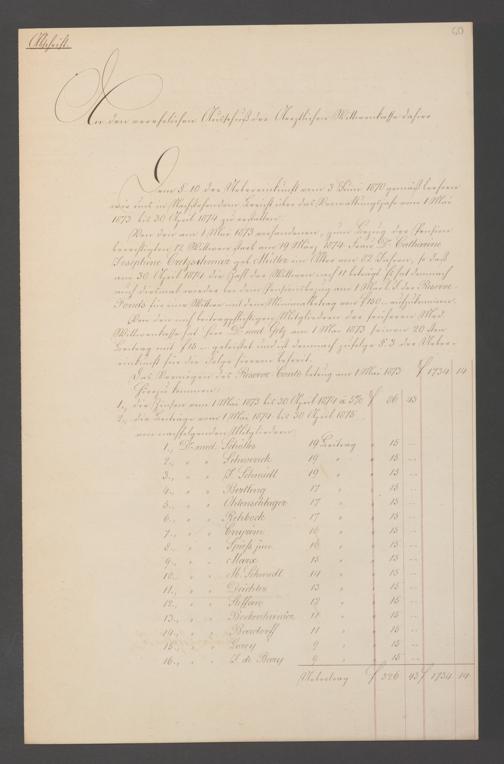 Abschrift.
60
An den verehrlichen Ausschuß der Aerztlichen Wittwenkasse dahier
Dem § 10 der Uebereinkunft vom 3 Juni 1870 gemäß beehren
wir uns in Nachstehendem Bericht über das Verwaltungsjahr vom 1 Mai
1873 bis 30 April 1874 zu erstatten.
Von den am 1 Mai 1873 vorhandenen, zum Bezug der Pension
berechtigten 12 Wittwen starb am 19 März 1874 Frau Dr. Catharine
Josephine geb. Müller im Alter von 82 Jahren, so daß
am 30 April 1874 die Zahl der Wittwen noch 11 beträgt. Es hat demnach
auch diesmal wieder bei dem Pensionsbezug am 1 Mai d. J. der Reserve
Fonds für eine Wittwe mit dem Minimalbetrag von f 150.- einzutreten.
Von den noch beitragspflichtigen Mitgliedern der früheren Med.
Wittwenkasse hat Herr Dr. med. Getz am 1 Mai 1873 seinen 20 sten
Beitrag mit f 15.- geleistet und ist demnach zufolge § 3 der Ueber-
einkunft für die Folge hievon befreit.
Das Vermögen des Reserve-Conto betrug am 1 Mai 1873 f 1734 14
Hierzu kommen:
1., die Zinsen vom 1 Mai 1873 bis 30 April 1874 à 5% f 86 43
2., die Beiträge vom 1 Mai 1874 bis 30 April 1875
von nachfolgenden Mitgliedern
1., Dr. med. Schüler 19 Beitrag " 15 ..
2., " " 19 " " 15 ..
3., " " J. Schmidt 19 " " 15 ..
4., " " 17 " " 15 ..
5., " " Ohlenschlager 17 " " 15 ..
6., " " Rehbock 17 " " 15 ..
7., " " 16 " " 15 ..
8., " " Spieß jun. 16 " " 15 ..
9., " " Marx 15 " " 15 ..
10., " " M. Schmidt 14 " " 15 ..
11., " " 13 " " 15 ..
12., " " 12 " " 15 ..
13., " " Bockenheimer 11 " " 15 ..
14., " " 11 " " 15 ..
15., " " Lorey 9 " " 15 ..
16., " " J. de Bary 9 " " 15 ..
Uebertrag f 326 43 f 1734 14